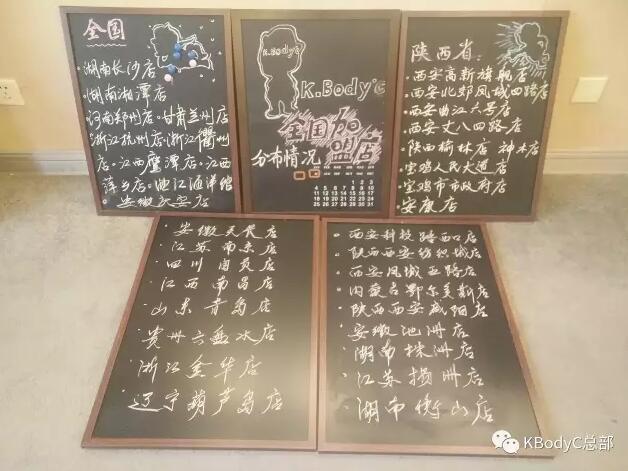 全国
·湖南长沙店
·湖南湘潭店
·河南郑州店·甘肃兰州店
·浙江杭州店·浙江衢州
店。江西鹰潭店·江西
萍乡店。曲江海洋馆
店
K.BODY'C
K.Body'c
全国加
盟店
分布情况
4 5 6 7 8 9 10
11 12 13 14 15 16 17
18 19 20 21 22 23 24
25 26 27 28 29 30 31
陕西省:
·西安高新旗舰店
·西安北郊凤城四路店
·西安曲江六号店
·西安丈八四路店
·陕西榆林店 神木店
·宝鸡人民大道店
·宝鸡市市政府店
·安康店
·安徽天长店
·江苏南京店
·四川自贡店
·江西南昌店
·山东青岛店
·贵州六盘水店
·浙江金华店
·辽宁葫芦岛店
·西安科技路西口店
·陕西西安纺织城店
·西安凤城五路店
·内蒙古鄂尔多斯店
·陕西西安咸阳店
·安徽池州店
·湖南株洲店
·江苏 店
·湖南衡山店
KBodyC总部